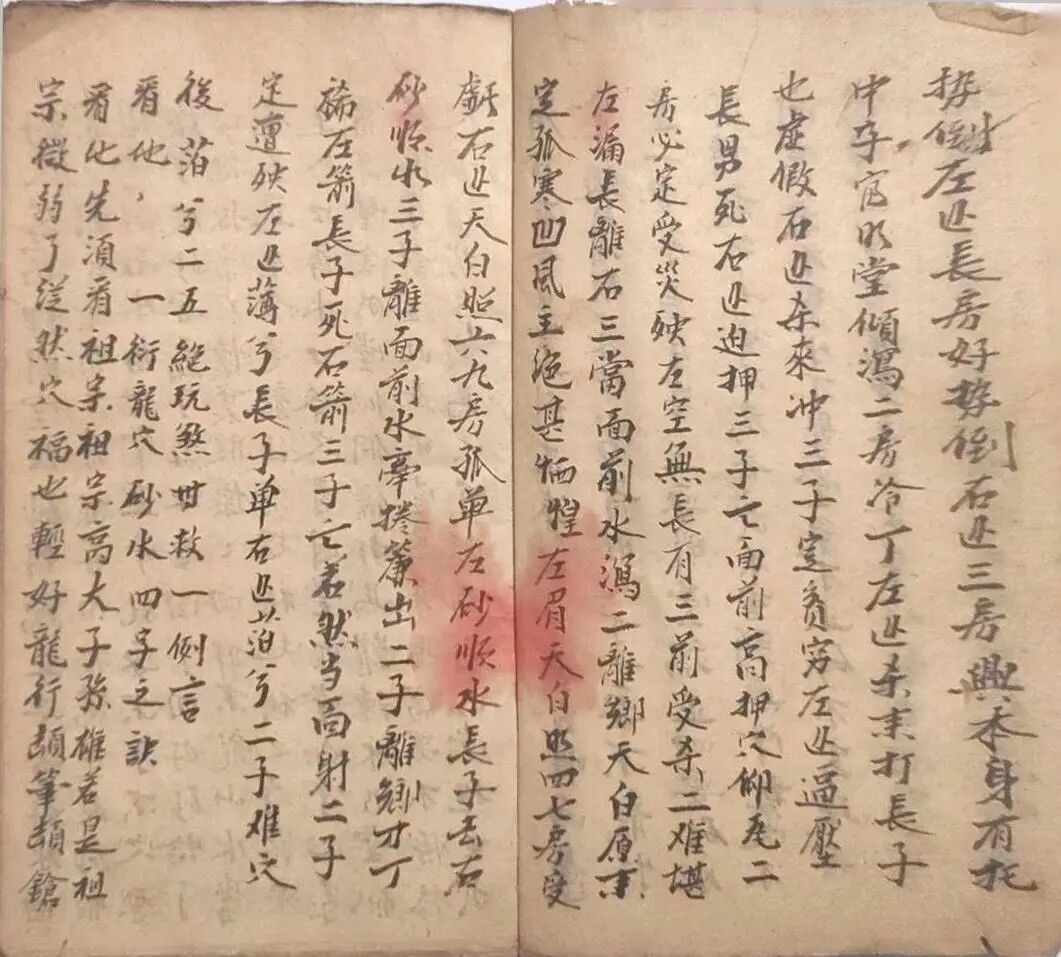 势倒左边長房好势倒右边三房興本身有托
中子官明堂傾瀉二房冷丁左边杀来打長子
也虚假右边杀來冲三子定貧穷左边逼壓
長男死右边迫押三子亡面前高押穴仰瓦二
房必定受災殃左空無長有三前受杀二难堪
左漏長離右三當面前水瀉二離鄉天白原来
定孤寒凹風主绝甚恓惶左眉天白照四七房受
虧右边天白照六九房孤单左砂順水長子去右
砂順水三子離面前水牽捲簾出二子離鄉才丁
稀左箭長子死右箭三子亡若然当面射二子
定遭殃左边薄兮長子单右边箔兮二子难穴
後箔兮二五絶玩煞世救一例言
看他，一衍龍穴砂水四字之訣
看他先須看祖宗祖宗高大子孫雄若是祖
宗微弱了縦然穴福也輕好龍行頡筆頡鎗